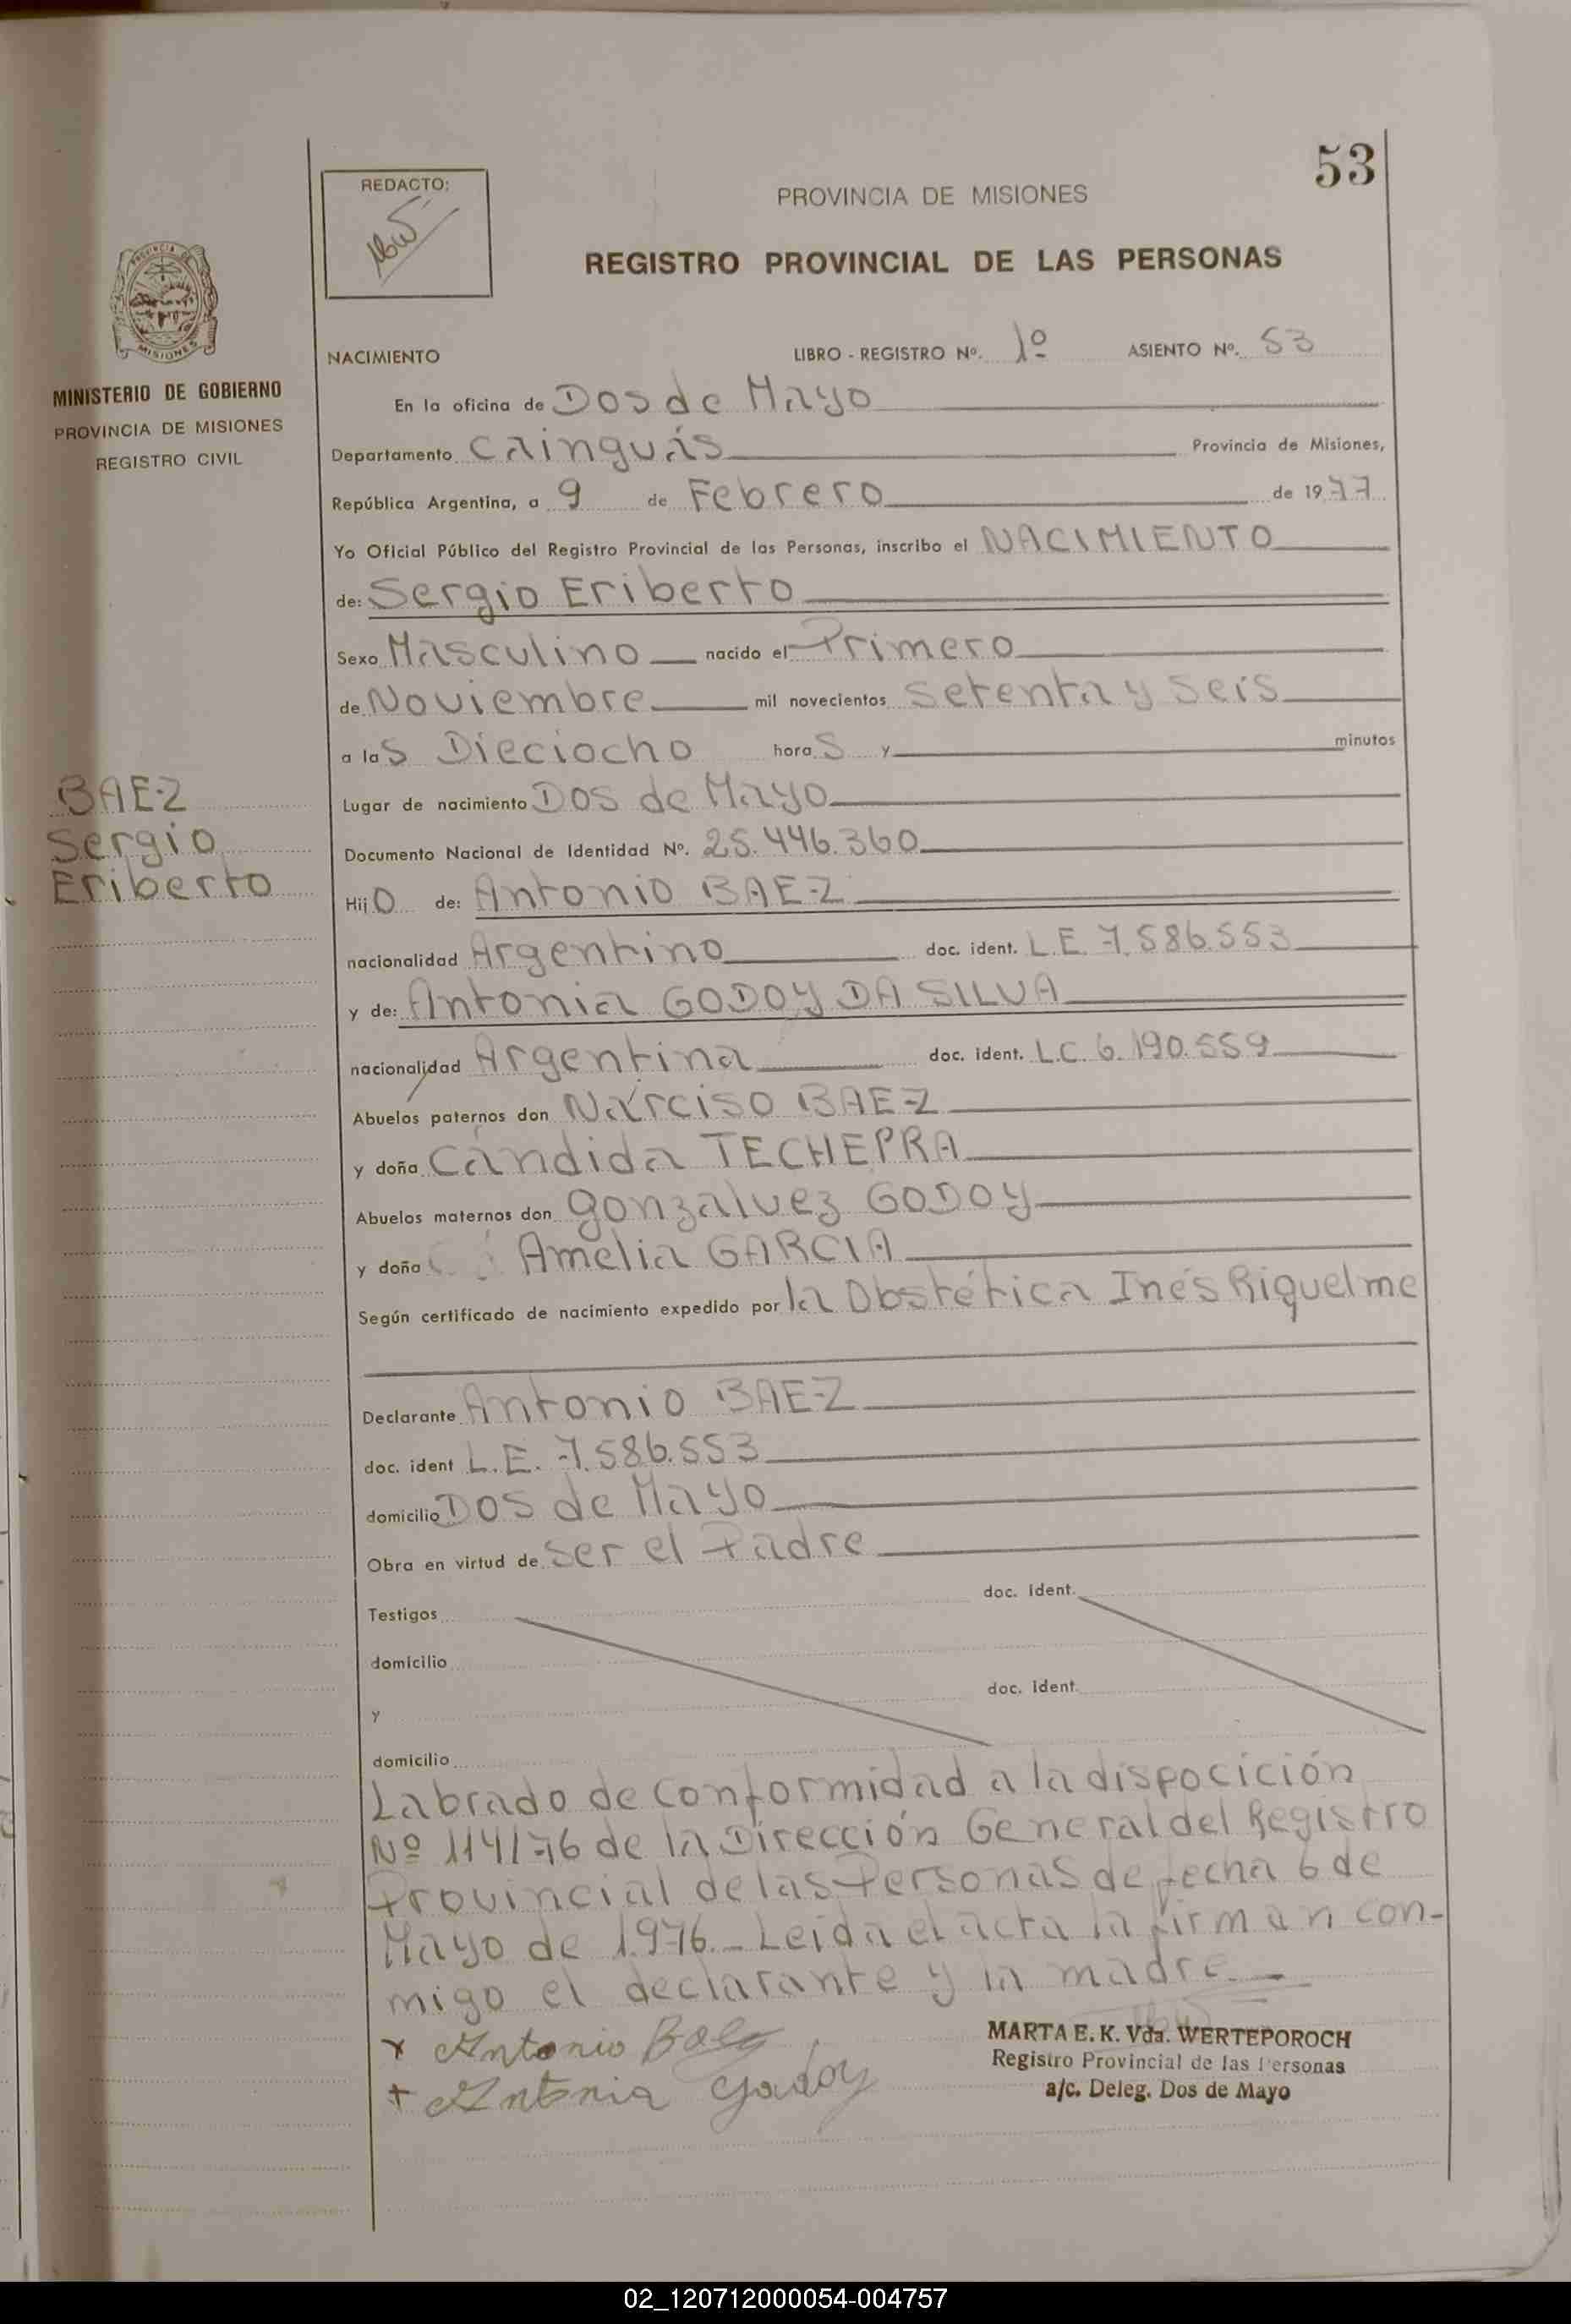 53
REDACTO:
PROVINCIA DE MISIONES
REGISTRO PROVINCIAL DE LAS PERSONAS
PROVINCIA DE
MISIONES
MINISTERIO DE GOBIERNO
PROVINCIA DE MISIONES
REGISTRO CIVIL
NACIMIENTO LIBRO - REGISTRO Nº. 1º ASIENTO Nº. 53
En la oficina de Dos de Mayo
Departamento Cainguás Provincia de Misiones,
República Argentina, a 9 de Febrero de 1977
Yo Oficial Público del Registro Provincial de las Personas, inscribo el NACIMIENTO
de: Sergio Eriberto
Sexo Masculino nacido el Primero
de Noviembre mil novecientos setenta y seis
a las Dieciocho horas y minutos
BAEZ
Sergio
Eriberto
Lugar de nacimiento Dos de Mayo
Documento Nacional de Identidad Nº. 25.446.360
Hijo de: Antonio BAEZ
nacionalidad Argentino doc. ident. L.E. 7.586.553
y de: Antonia GODOY DA SILVA
nacionalidad Argentina doc. ident. L.C. 6.190.559
Abuelos paternos don Narciso BAEZ
y doña Cándida TECHEPRA
Abuelos maternos don gonzalvez GODOY
y doña Amelia GARCIA
Según certificado de nacimiento expedido por la Obstética Inés Riquelme
Declarante Antonio BAEZ
doc. ident L.E. 7.586.553
domicilio Dos de Mayo
Obra en virtud de ser el Padre
Testigos doc. ident.
domicilio
y doc. ident.
domicilio
Labrado de conformidad a la dispocición
Nº 114/76 de la Dirección General del Registro
Provincial de las Personas de fecha 6 de
Mayo de 1.976.- Leida el acta la firman con-
migo el declarante y la madre.-
x Antonio Baez
+ Antonia Godoy
MARTA E. K. Vda. WERTEPOROCH
Registro Provincial de las Personas
a/c. Deleg. Dos de Mayo
02_120712000054-004757